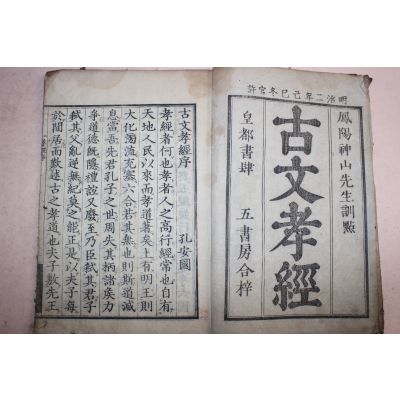 明治二年己巳冬官許
鳳陽神山先生訓點
古文孝經
皇都書肆 五書房合梓
古文孝經序
孔安國
孝經者何也孝者人之高行經常也自有
天地人民以來而孝道著矣上有明王則
大化滂流充塞六合若其無也則斯道滅
息當吾先君孔子之世周失其柄諸侯力
爭道德既隱禮誼又廢至乃臣弒其君子
弒其父亂逆無紀莫之能正是以夫子每
於閒居而歎述古之孝道也夫子敷先王